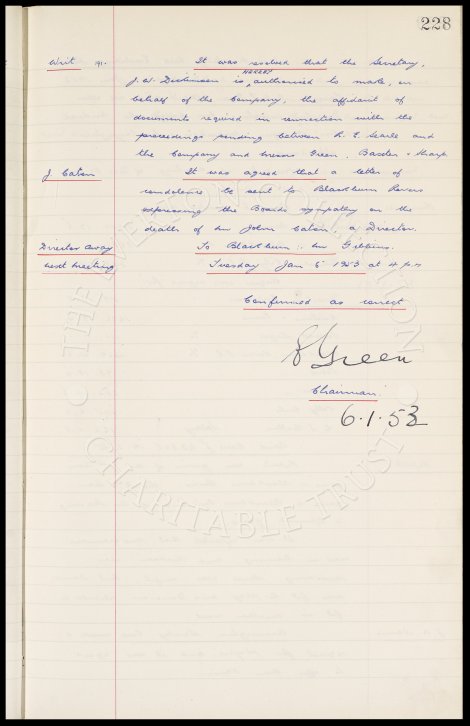 228
Writ 191. It was resolved that the Secretary,
J. W. Dickinson is HEREBY authorised to make, on
behalf of the Company, the affidavit of
documents required in connection with the
proceedings pending between R. E. Searle and
the Company and Messrs Green, Baxter & Sharp.
J. Caton It was agreed that a letter of
condolence be sent to Blackburn Rovers
expressing the Boards sympathy on the
death of Mr John Caton, a Director.
Director away To Blackburn :- Mr Gibbins.
next meeting Tuesday Jan 6th 1953 at 4 pm
Confirmed as correct
S Green
Chairman.
6.1.53
THE EVERTON COLLECTION
CHARITABLE TRUST